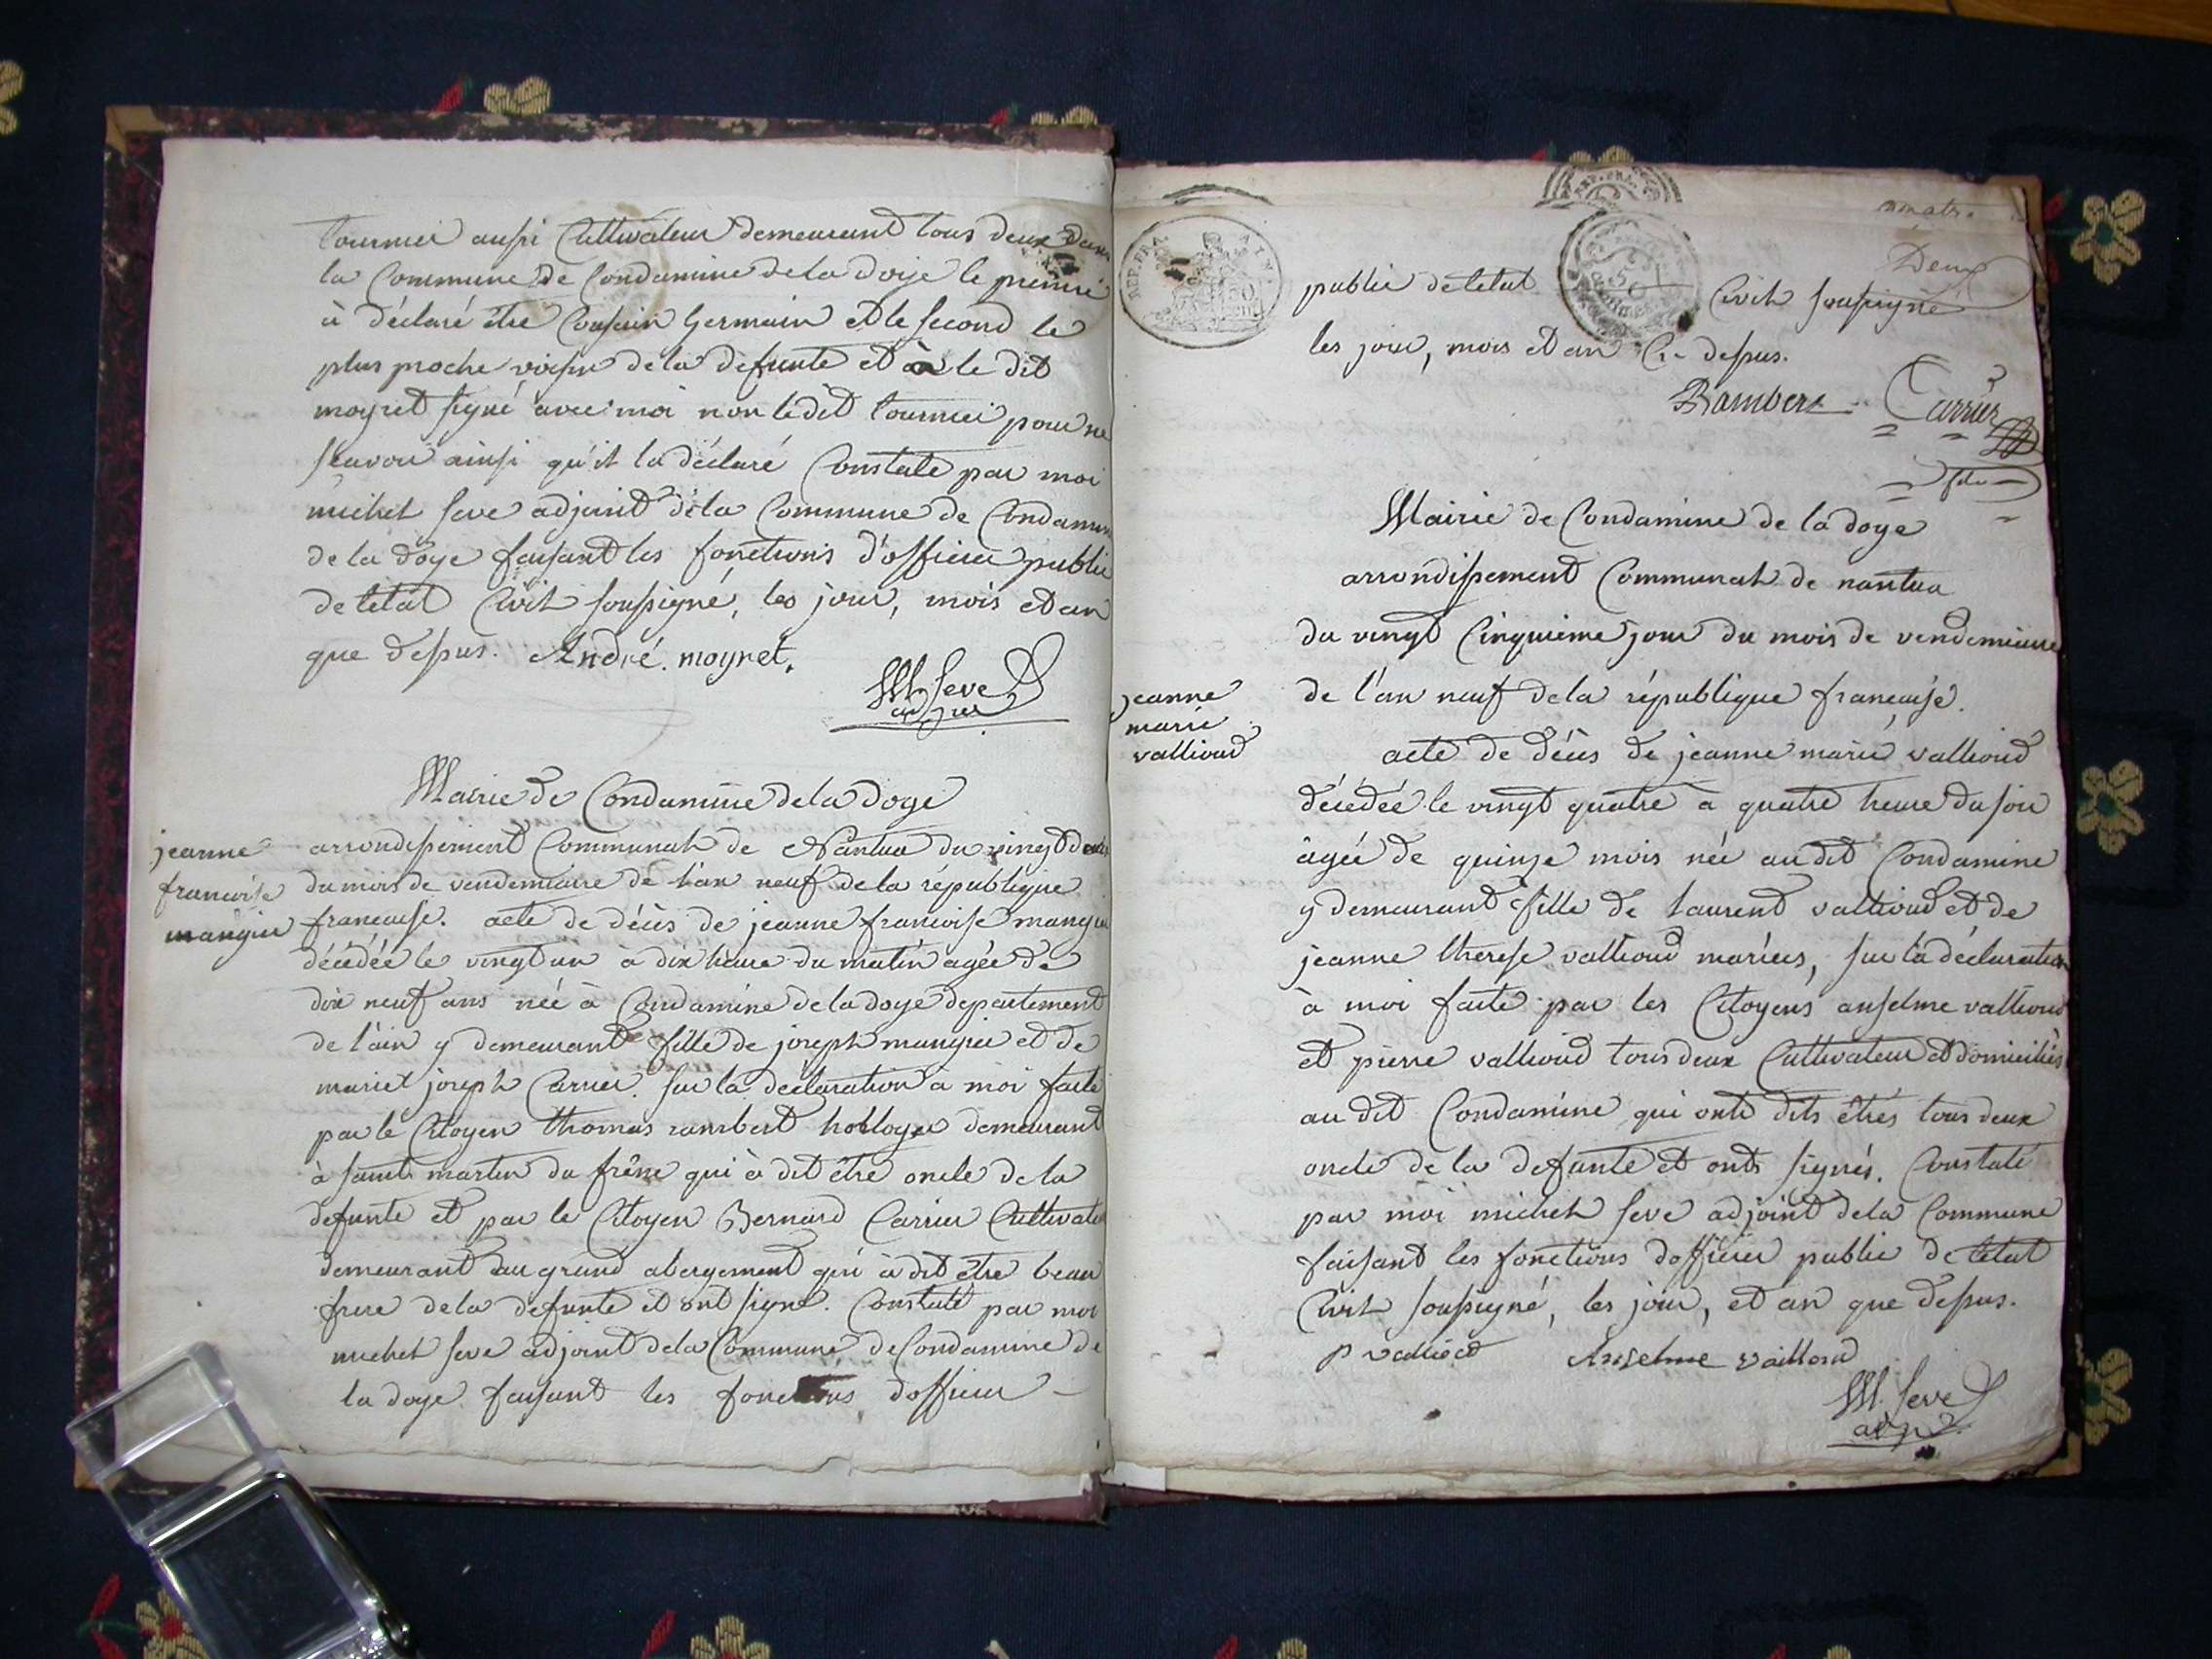 tournier aussi Cultivateur demeurant tous deux dans
la Commune de Condamine de la doye le premier
à déclaré être Cousin Germain et le second le
plus proche voisin de la defunte et à le dit
moyret signé avec moi non le dit tournier pour ne
sçavoir ainsi qu'il la déclaré Constaté par moi
michel seve adjoint de la Commune de Condamine
de la doye faisant les fonctions d'officier public
de letat Civil soussigné, les jour, mois et an
que dessus. André. moyret.
M seve
adjoint
Mairie de Condamine de la doye
jeanne
francoise
mangier
arrondissement Communal de Nantua du vingt deux
du mois de vendemiaire de l'an neuf de la république
francaise. acte de décès de jeanne francoise mangier
décédée le vingt un à dix heure du matin agée de
dix neuf ans née à Condamine de la doye departement
de l'ain y demeurant fille de joseph mangier et de
mariet joseph Carrier. sur la declaration a moi faite
par le Citoyen thomas rambert horloger demeurant
à saint martin du frêne qui à dit être oncle de la
defunte et par le Citoyen Bernard Carrier Cultivateur
demeurant au grand abergement qui à dit être beau
frere de la defunte et ont signé. Constaté par moi
michel seve adjoint de la Commune de Condamine de
la doye faisant les fonctions d'officier
REP. FRA. AIN
50
Deux
public de letat Civil soussigné
les jour, mois et an Ci-dessus.
Rambert Carrier
Mairie de Condamine de la doye
arrondissement Communal de nantua
du vingt Cinquieme jour du mois de vendemiaire
de l'an neuf de la république francaise.
jeanne
marie
vallioud
acte de décès de jeanne marie vallioud
décédée le vingt quatre à quatre heure du soir
âgée de quinze mois née au dit Condamine
y demeurant fille de laurent vallioud et de
jeanne therese vallioud mariées, sur la déclaration
à moi faite par les Citoyens anselme vallioud
et pierre vallioud tous deux Cultivateur et domiciliés
au dit Condamine qui onts dits êtres tous deux
oncle de la defunte et onts signés. Constaté
par moi michel seve adjoint de la Commune
faisant les fonctions d'officier public de letat
Civil soussigné, les jour, et an que dessus.
p valliod Anselme vailloud
M. seve
adj